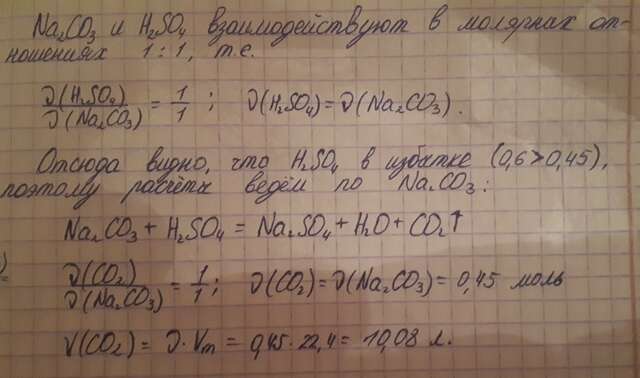 Na₂CO₃ и H₂SO₄ взаимодействуют в молярных от-
ношениях 1:1, т.е.
ν(H₂SO₄)/ν(Na₂CO₃) = 1/1 ; ν(H₂SO₄) = ν(Na₂CO₃).
Отсюда видно, что H₂SO₄ в избытке (0,6 > 0,45),
поэтому расчёты ведём по Na₂CO₃:
Na₂CO₃ + H₂SO₄ = Na₂SO₄ + H₂O + CO₂↑
ν(CO₂)/ν(Na₂CO₃) = 1/1 ; ν(CO₂) = ν(Na₂CO₃) = 0,45 моль
V(CO₂) = ν · Vm = 0,45 · 22,4 = 10,08 л.